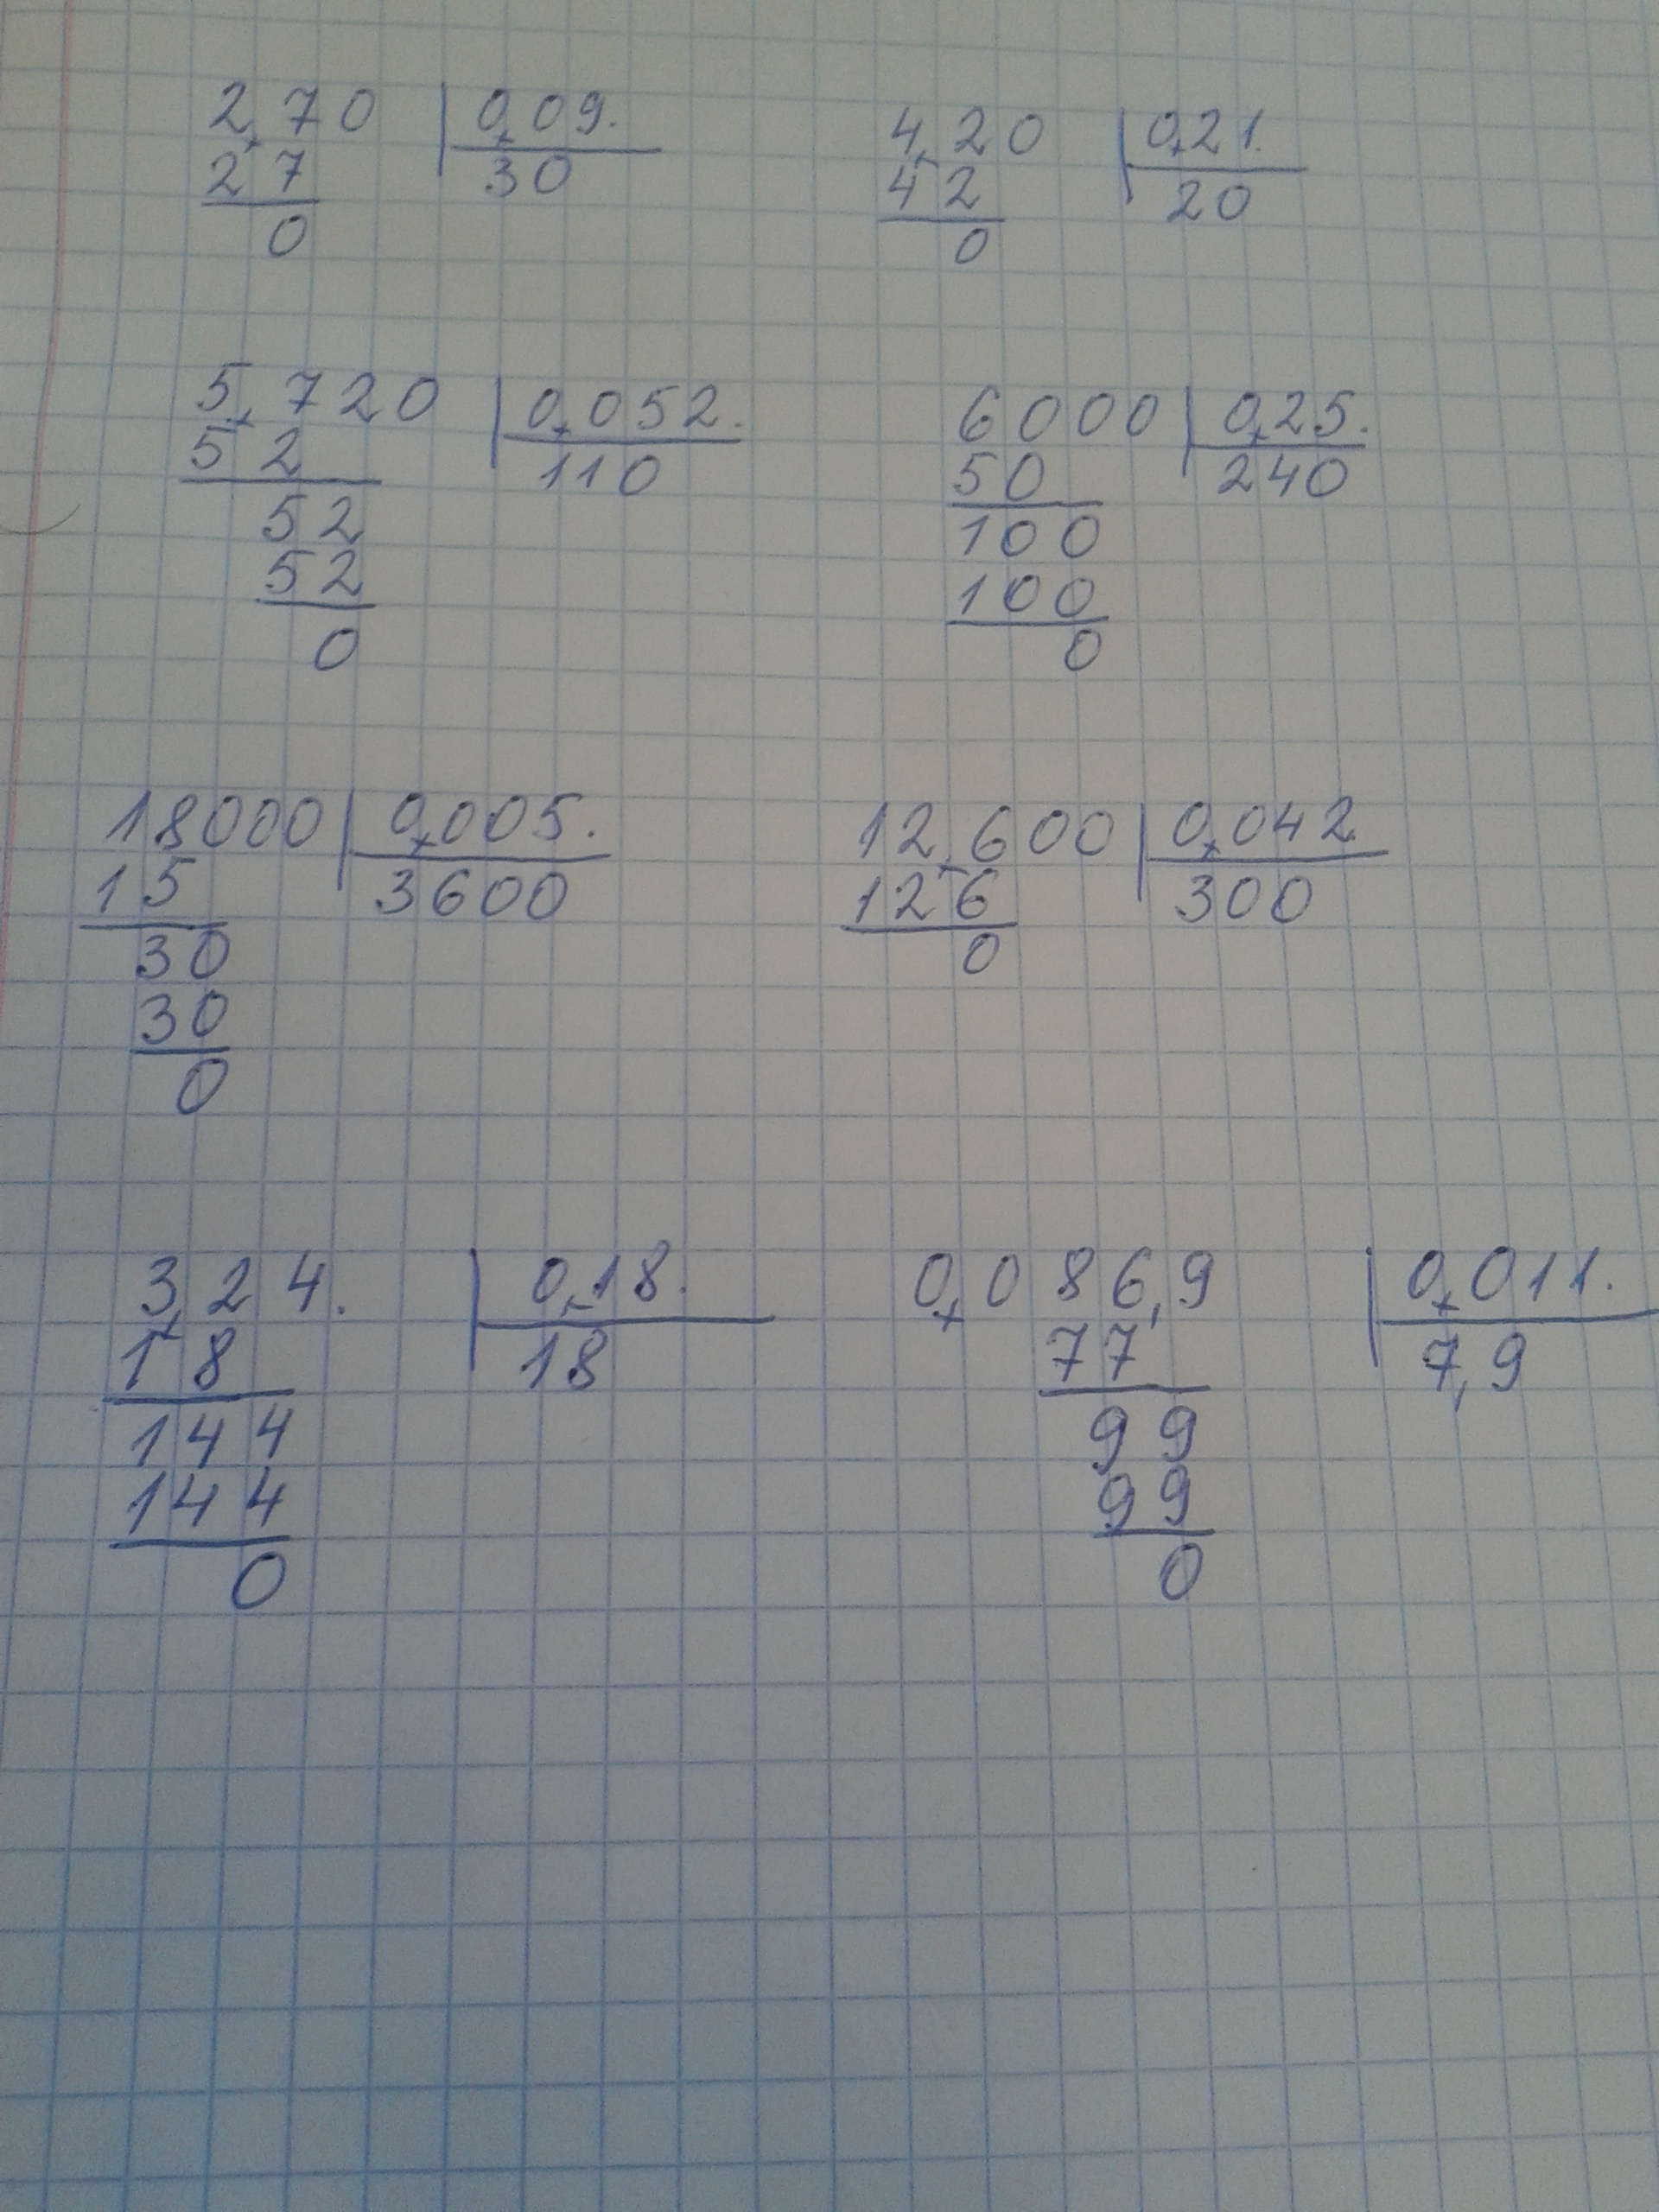 2,70 0,09.
27 30
0
4,20 0,21.
42 20
0
5,720 0,052.
52 110
52
52
0
6000 0,25.
50 240
100
100
0
18000 0,005.
15 3600
30
30
0
12,600 0,042
126 300
0
3,24. 0,18.
18 18
144
144
0
0,086,9 0,011.
77 7,9
99
99
0